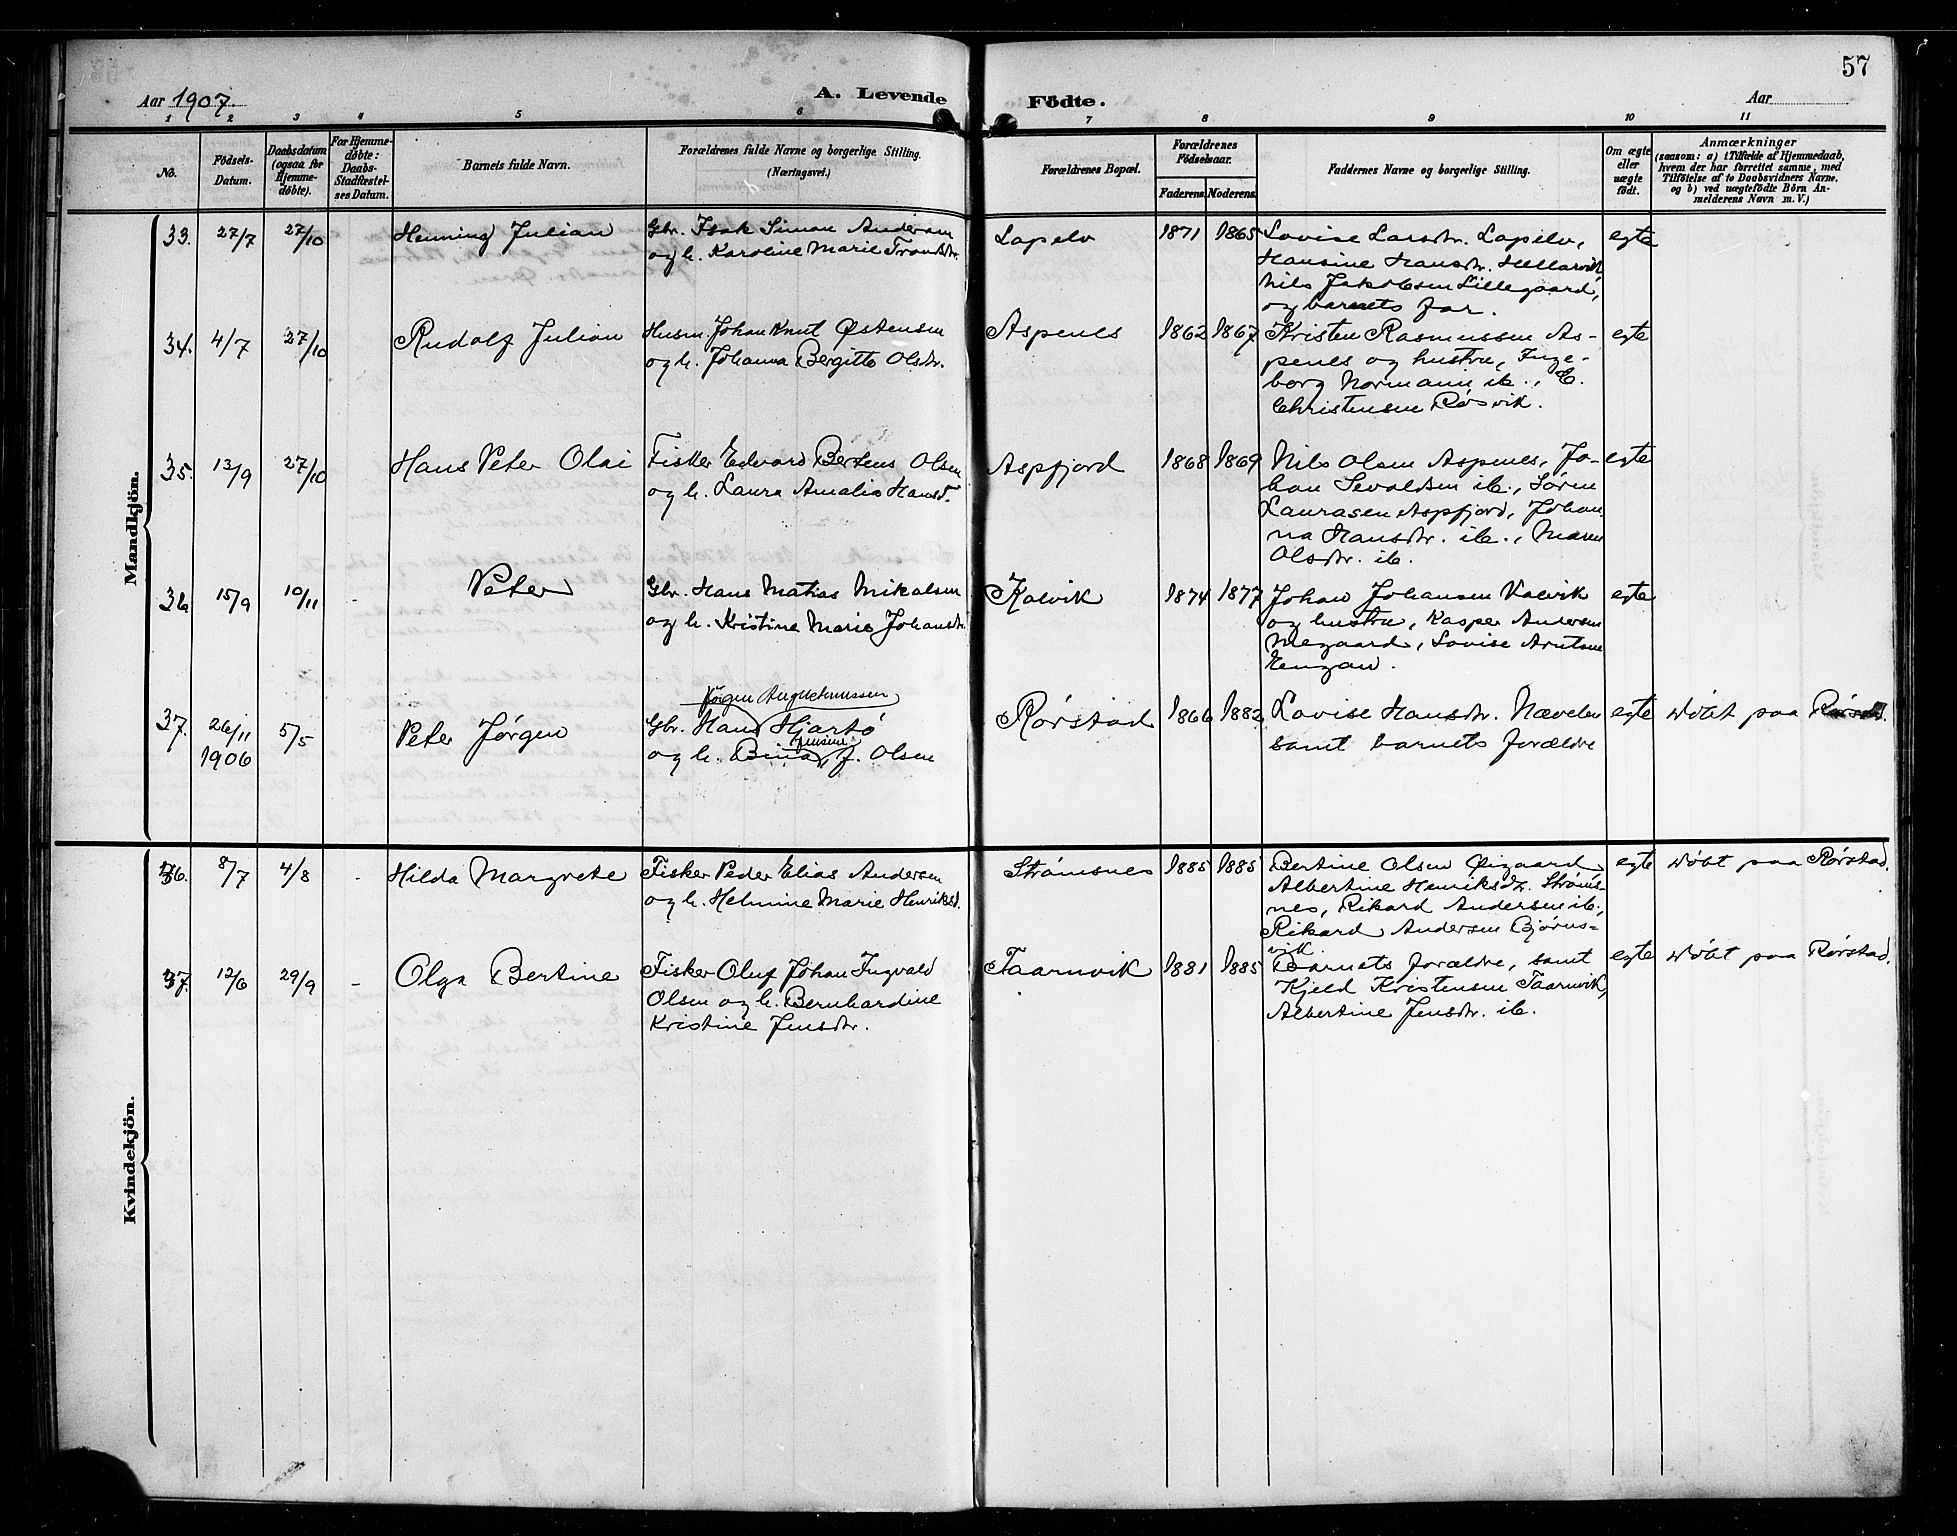 57
Aar 1907. A. Levende Födte. Aar
1 2 3 4 5 6 7 8 9 10 11
No.
Födsels-
Datum.
Daabsdatum
(ogsaa for
Hjemme-
döbte).
For Hjemme-
døbte:
Daabs-
Stadfæstel-
ses Datum.
Barnets fulde Navn.
Forældrenes fulde Navne og borgerlige Stilling.
(Næringsvei.)
Forældrenes Bopæl.
Forældrenes
Födselsaar.
Faderens. Moderens.
Faddernes Navne og borgerlige Stilling.
Om ægte
eller
uægte
födt.
Anmærkninger
(saasom: a) i Tilfælde af Hjemmedaab,
hvem der har forrettet samme, med
Tilföielse af to Daabsvidners Navne.
og b) ved uægtefödte Börn An-
melderens Navn m. V.)
Mandkjön.
33. 27/7 27/10 Henning Julian
Gbr. Isak Simon Andersen
og h. Karoline Marie Trondsdr.
Lapelv 1871 1865
Lovise Larsdr. Lapelv,
Hansine Hansdr. Hellarvik
Nils Jakobsen Lillegaard,
og barnets far.
egte
34. 4/7 27/10 Rudolf Julian
Husm. Johan Knut Østensen
og h. Johanna Bergitte Olsdr.
Aspenes 1862 1867
Kristen Rasmussen As-
penes og hustru, Inge-
borg Normann ib., C.
Christensen Røsvik.
egte
35. 13/9 27/10 Hans Peter Olai
Fisker Edvard Berteus Olsen
og h. Laura Amalia Hansd.
Aspfjord 1868 1869
Nils Olsen Aspenes, Jo-
han Sevaldsen ib., Søren
Laurasen Aspfjord, Johan-
na Hansdr. ib., Maren
Olsdr. ib.
egte
36 15/9 10/11 - Peter
Gbr. Hans Matias Mikalsen
og h. Kristine Marie Johansdr.
Kalvik 1874 1877
Johan Johansen Kalvik
og hustru, Kasper Andersen
Megaard, Lovise Arntsen
Engan.
egte
37. 26/11 1906 5/5 Peter Jørgen
Jørgen Angelmussen
Gbr. Hans Hjartø
Jensine
og h. Bina, J. Olsen
Rørstad 1866 1882
Lovise Hansdr. Nævelen
samt barnets forældre
egte Døbt paa
Kvindekjön.
36. 8/7 4/8 - Hilda Margrete
Fisker Peder Elias Andersen
og h. Helmine Marie Henriksd.
Strømsnes 1885 1885
Bertine Olsen Øigaard
Albertine Henriksdr. Strøms-
nes, Rikard Andersen ib.,
Rikard Andersen Bjørns-
vik
egte Døbt paa Rørstad.
37. 12/6 29/9 - Olga Bertine
Fisker Oluf Johan Ingvald
Olsen og h. Bernhardine
Kristine Jensdr.
Taarnvik 1881 1885
Barnets forældre, samt
Kjeld Kristensen Taarnvik,
Albertine Jensdr. ib.
egte Døbt paa Rørstad.